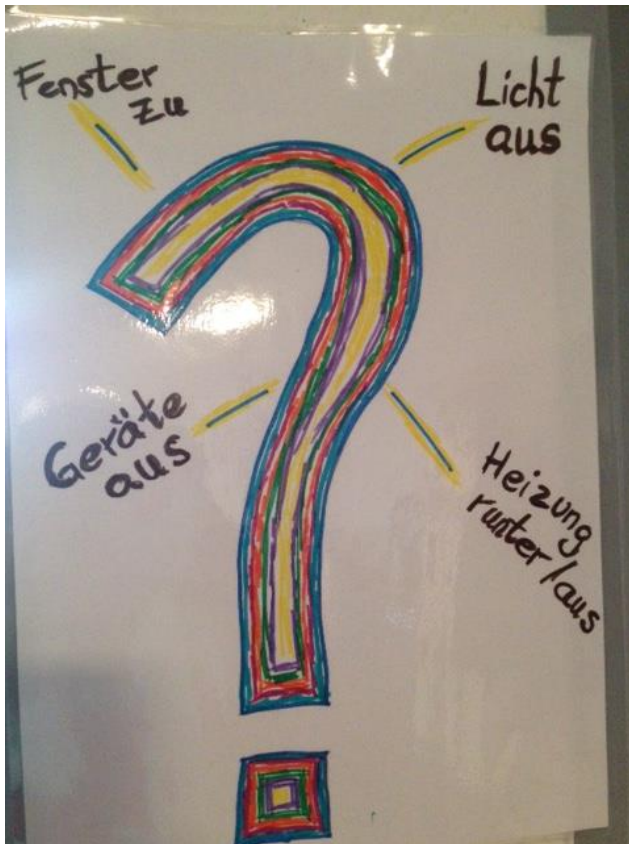 Fenster
zu
Licht
aus
Geräte
aus
Heizung
runter/aus